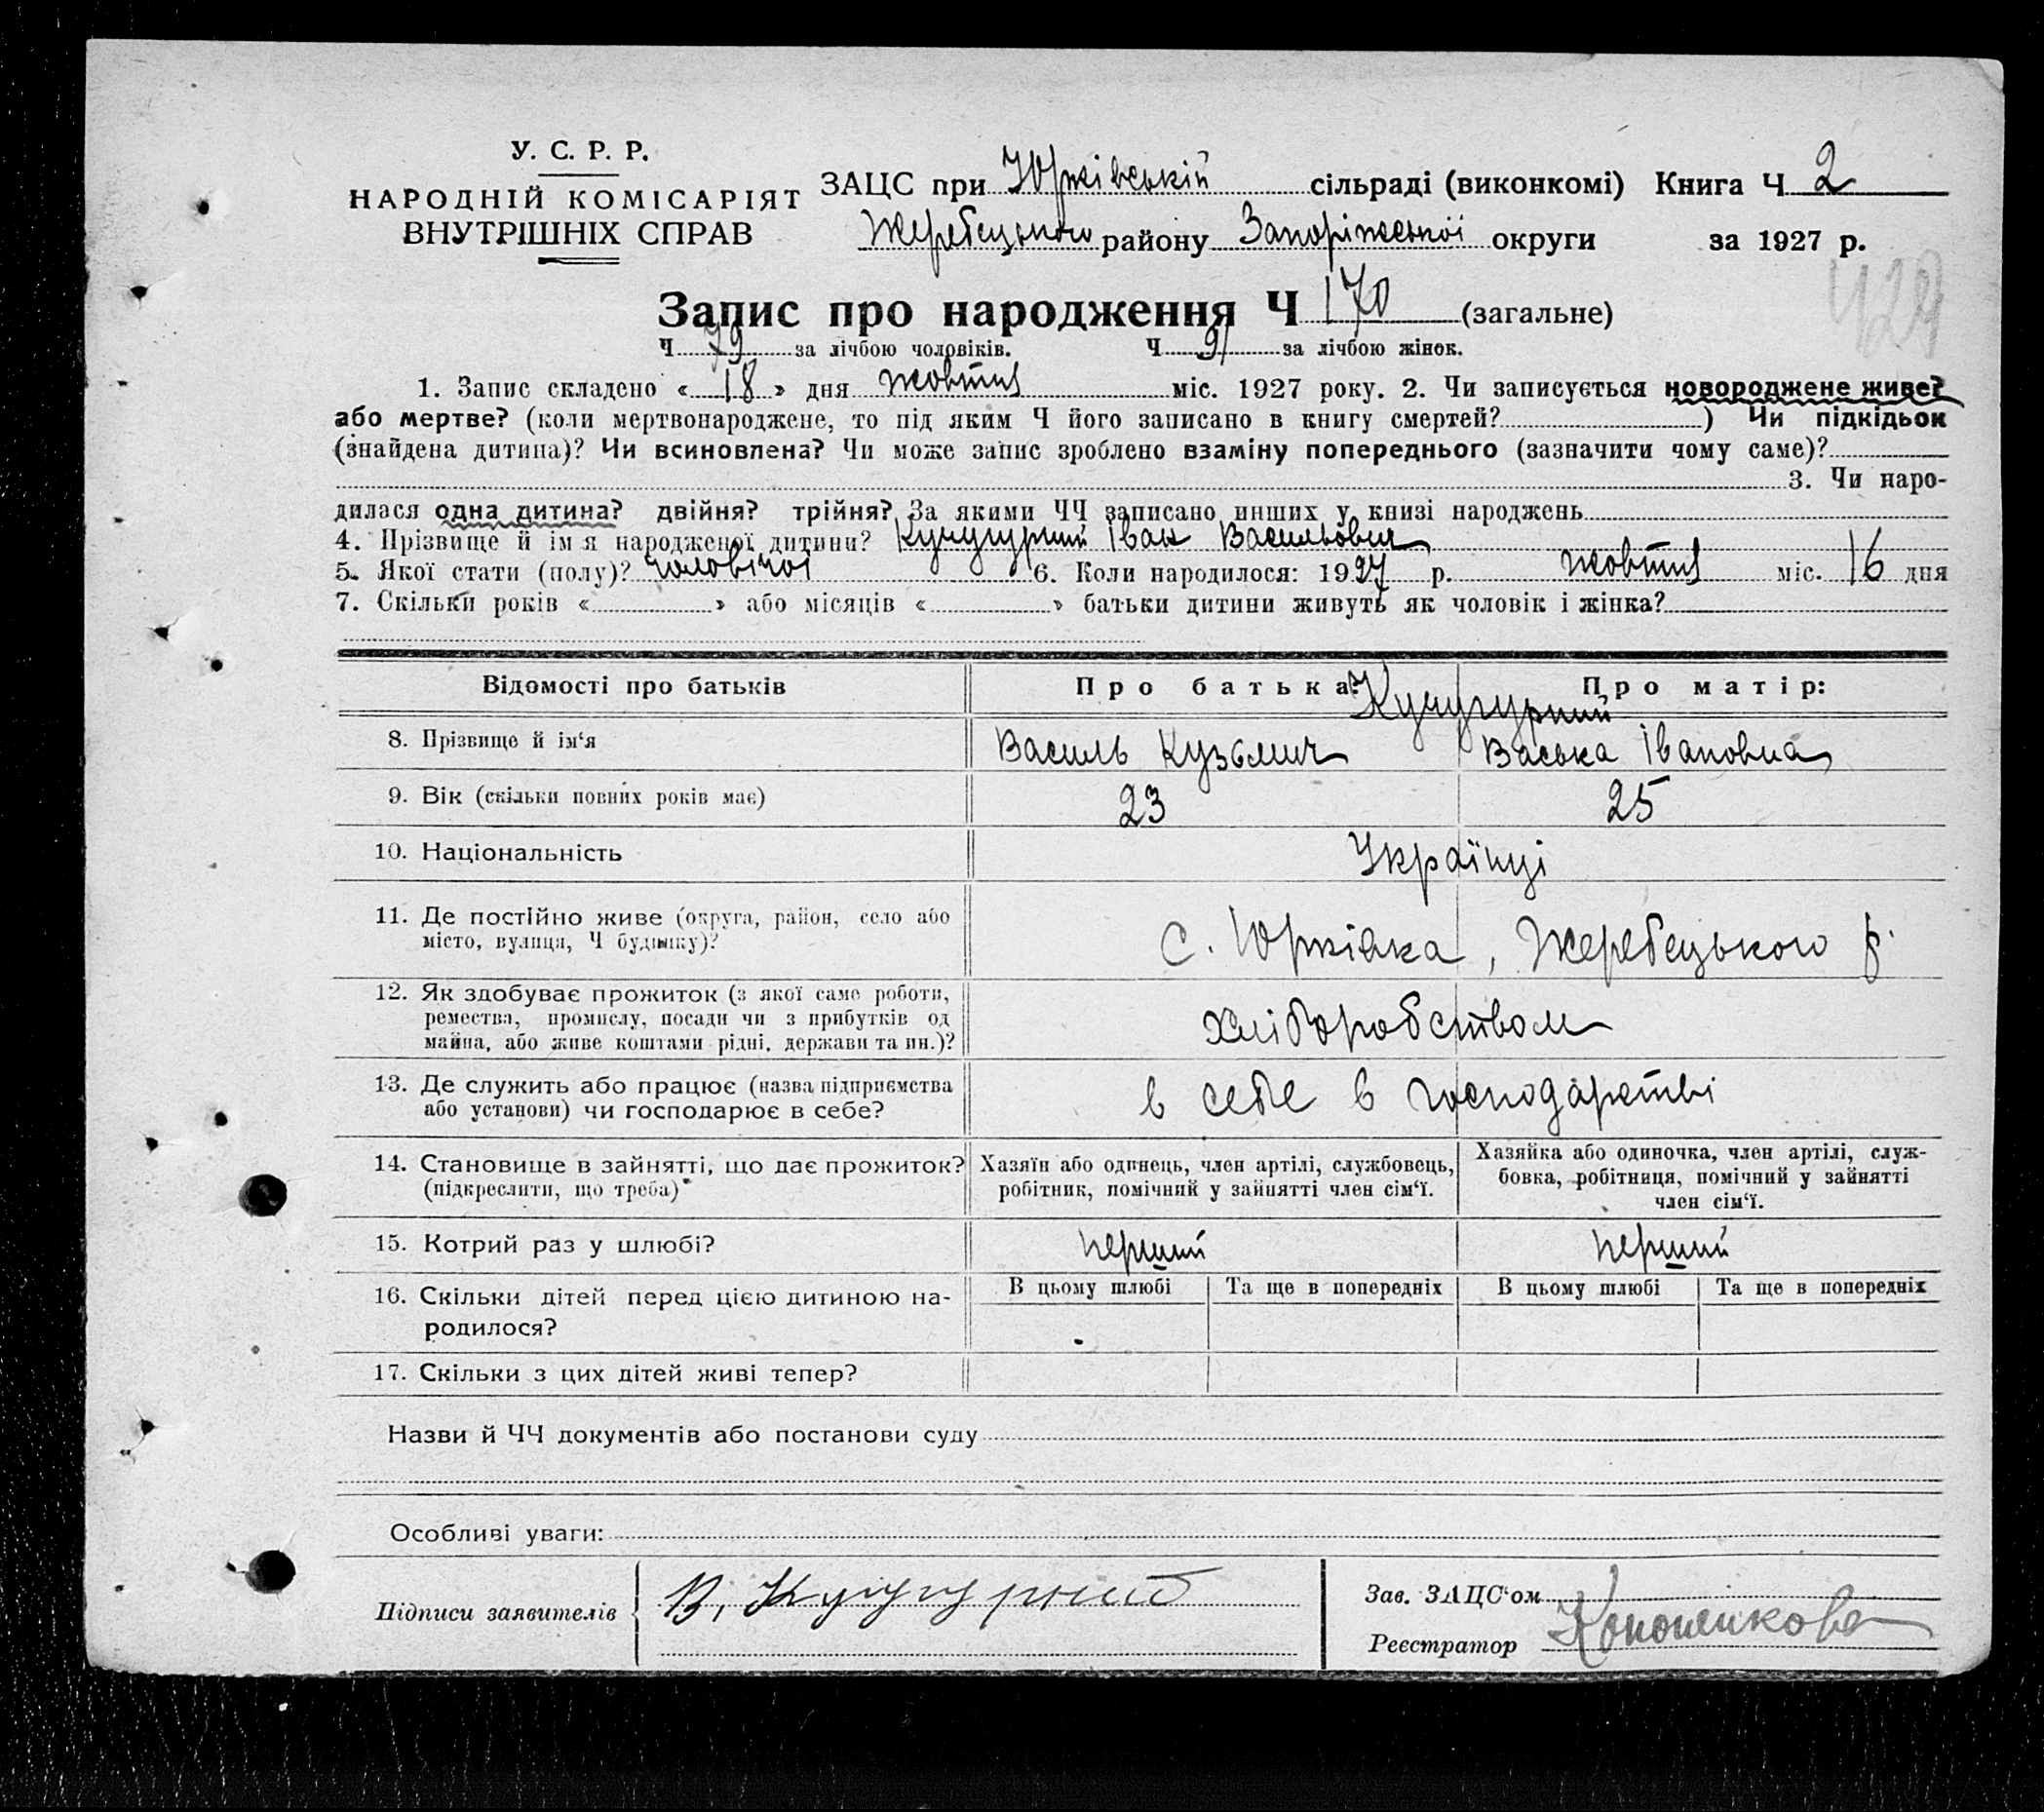 У. С. Р. Р.
НАРОДНІЙ КОМІСАРІЯТ
ВНУТРІШНІХ СПРАВ
ЗАЦС при Юрківській сільраді (виконкомі) Книга Ч 2
Жеребецького району Запоріжської округи за 1927 р.
Запис про народження Ч 170 (загальне)
Ч 79 за лічбою чоловіків. Ч 91 за лічбою жінок.
1. Запис складено « 18 » дня жовтня міс. 1927 року. 2. Чи записується новороджене живе?
або мертве? (коли мертвонароджене, то під яким Ч його записано в книгу смертей? ) Чи підкідьок
(знайдена дитина)? Чи всиновлена? Чи може запис зроблено взаміну попереднього (зазначити чому саме)?
3. Чи наро-
дилася одна дитина? двійня? трійня? За якими ЧЧ записано инших у книзі народжень
4. Прізвище й ім я народженої дитини? Кучугурний Іван Васильович
5. Якої стати (полу)? чоловічої 6. Коли народилося: 1927 р. жовтня міс. 16 дня
7. Скільки років « » або місяців « » батьки дитини живуть як чоловік і жінка?
Відомості про батьків Про батька: Про матір:
Кучугурний
8. Прізвище й ім‘я Василь Кузьмич Васька Івановна
9. Вік (скільки повних років має) 23 25
10. Національність Українці
11. Де постійно живе (округа, район, село або
місто, вулиця, Ч будинку)? с. Юрківка, Жеребецького р.
12. Як здобуває прожиток (з якої саме роботи,
ремества, промислу, посади чи з прибутків од
майна, або живе коштами рідні, держави та ин.)? хліборобством
13. Де служить або працює (назва підприємства
або установи) чи господарює в себе? в себе в господарстві
14. Становище в зайнятті, що дає прожиток?
(підкреслити, що треба)
Хазяїн або одинець, член артілі, службовець,
робітник, помічний у зайнятті член сім‘ї.
Хазяйка або одиночка, член артілі, служ-
бовка, робітниця, помічний у зайнятті
член сім‘ї.
15. Котрий раз у шлюбі? перший перший
16. Скільки дітей перед цією дитиною на-
родилося?
В цьому шлюбі Та ще в попередніх В цьому шлюбі Та ще в попередніх
17. Скільки з цих дітей живі тепер?
Назви й ЧЧ документів або постанови суду
Особливі уваги:
Підписи заявителів В. Кучугурний
Зав. ЗАЦС‘ом
Реєстратор Кононенкова